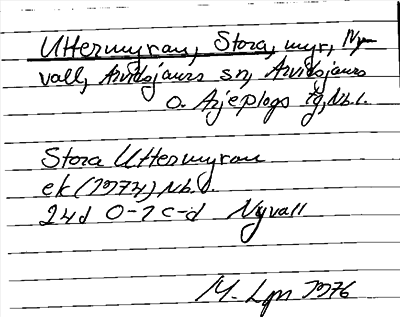 Uttermyran, Stora, myr, Ny-
vall, Arvidsjaurs sn, Arvidsjaurs
o. Arjeplogs tg, Nb. l.
Stora Uttermyran
ek (1974) Nb. l.
24d 0-1 c-d Nyvall
M. Lgn 1976